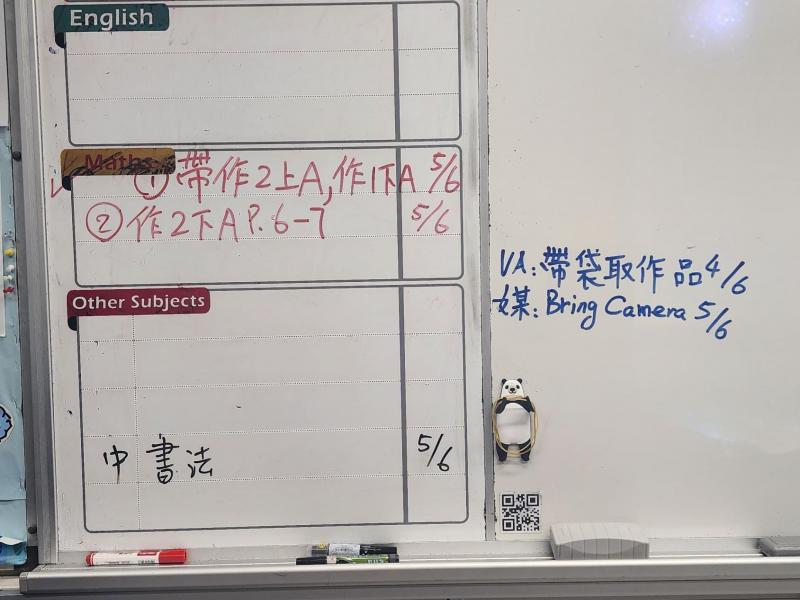 English
Maths
① 帶作2上A,作1下A 5/6
② 作2下A P. 6-7 5/6
Other Subjects
中 書法 5/6
VA: 帶袋取作品 4/6
媒: Bring Camera 5/6